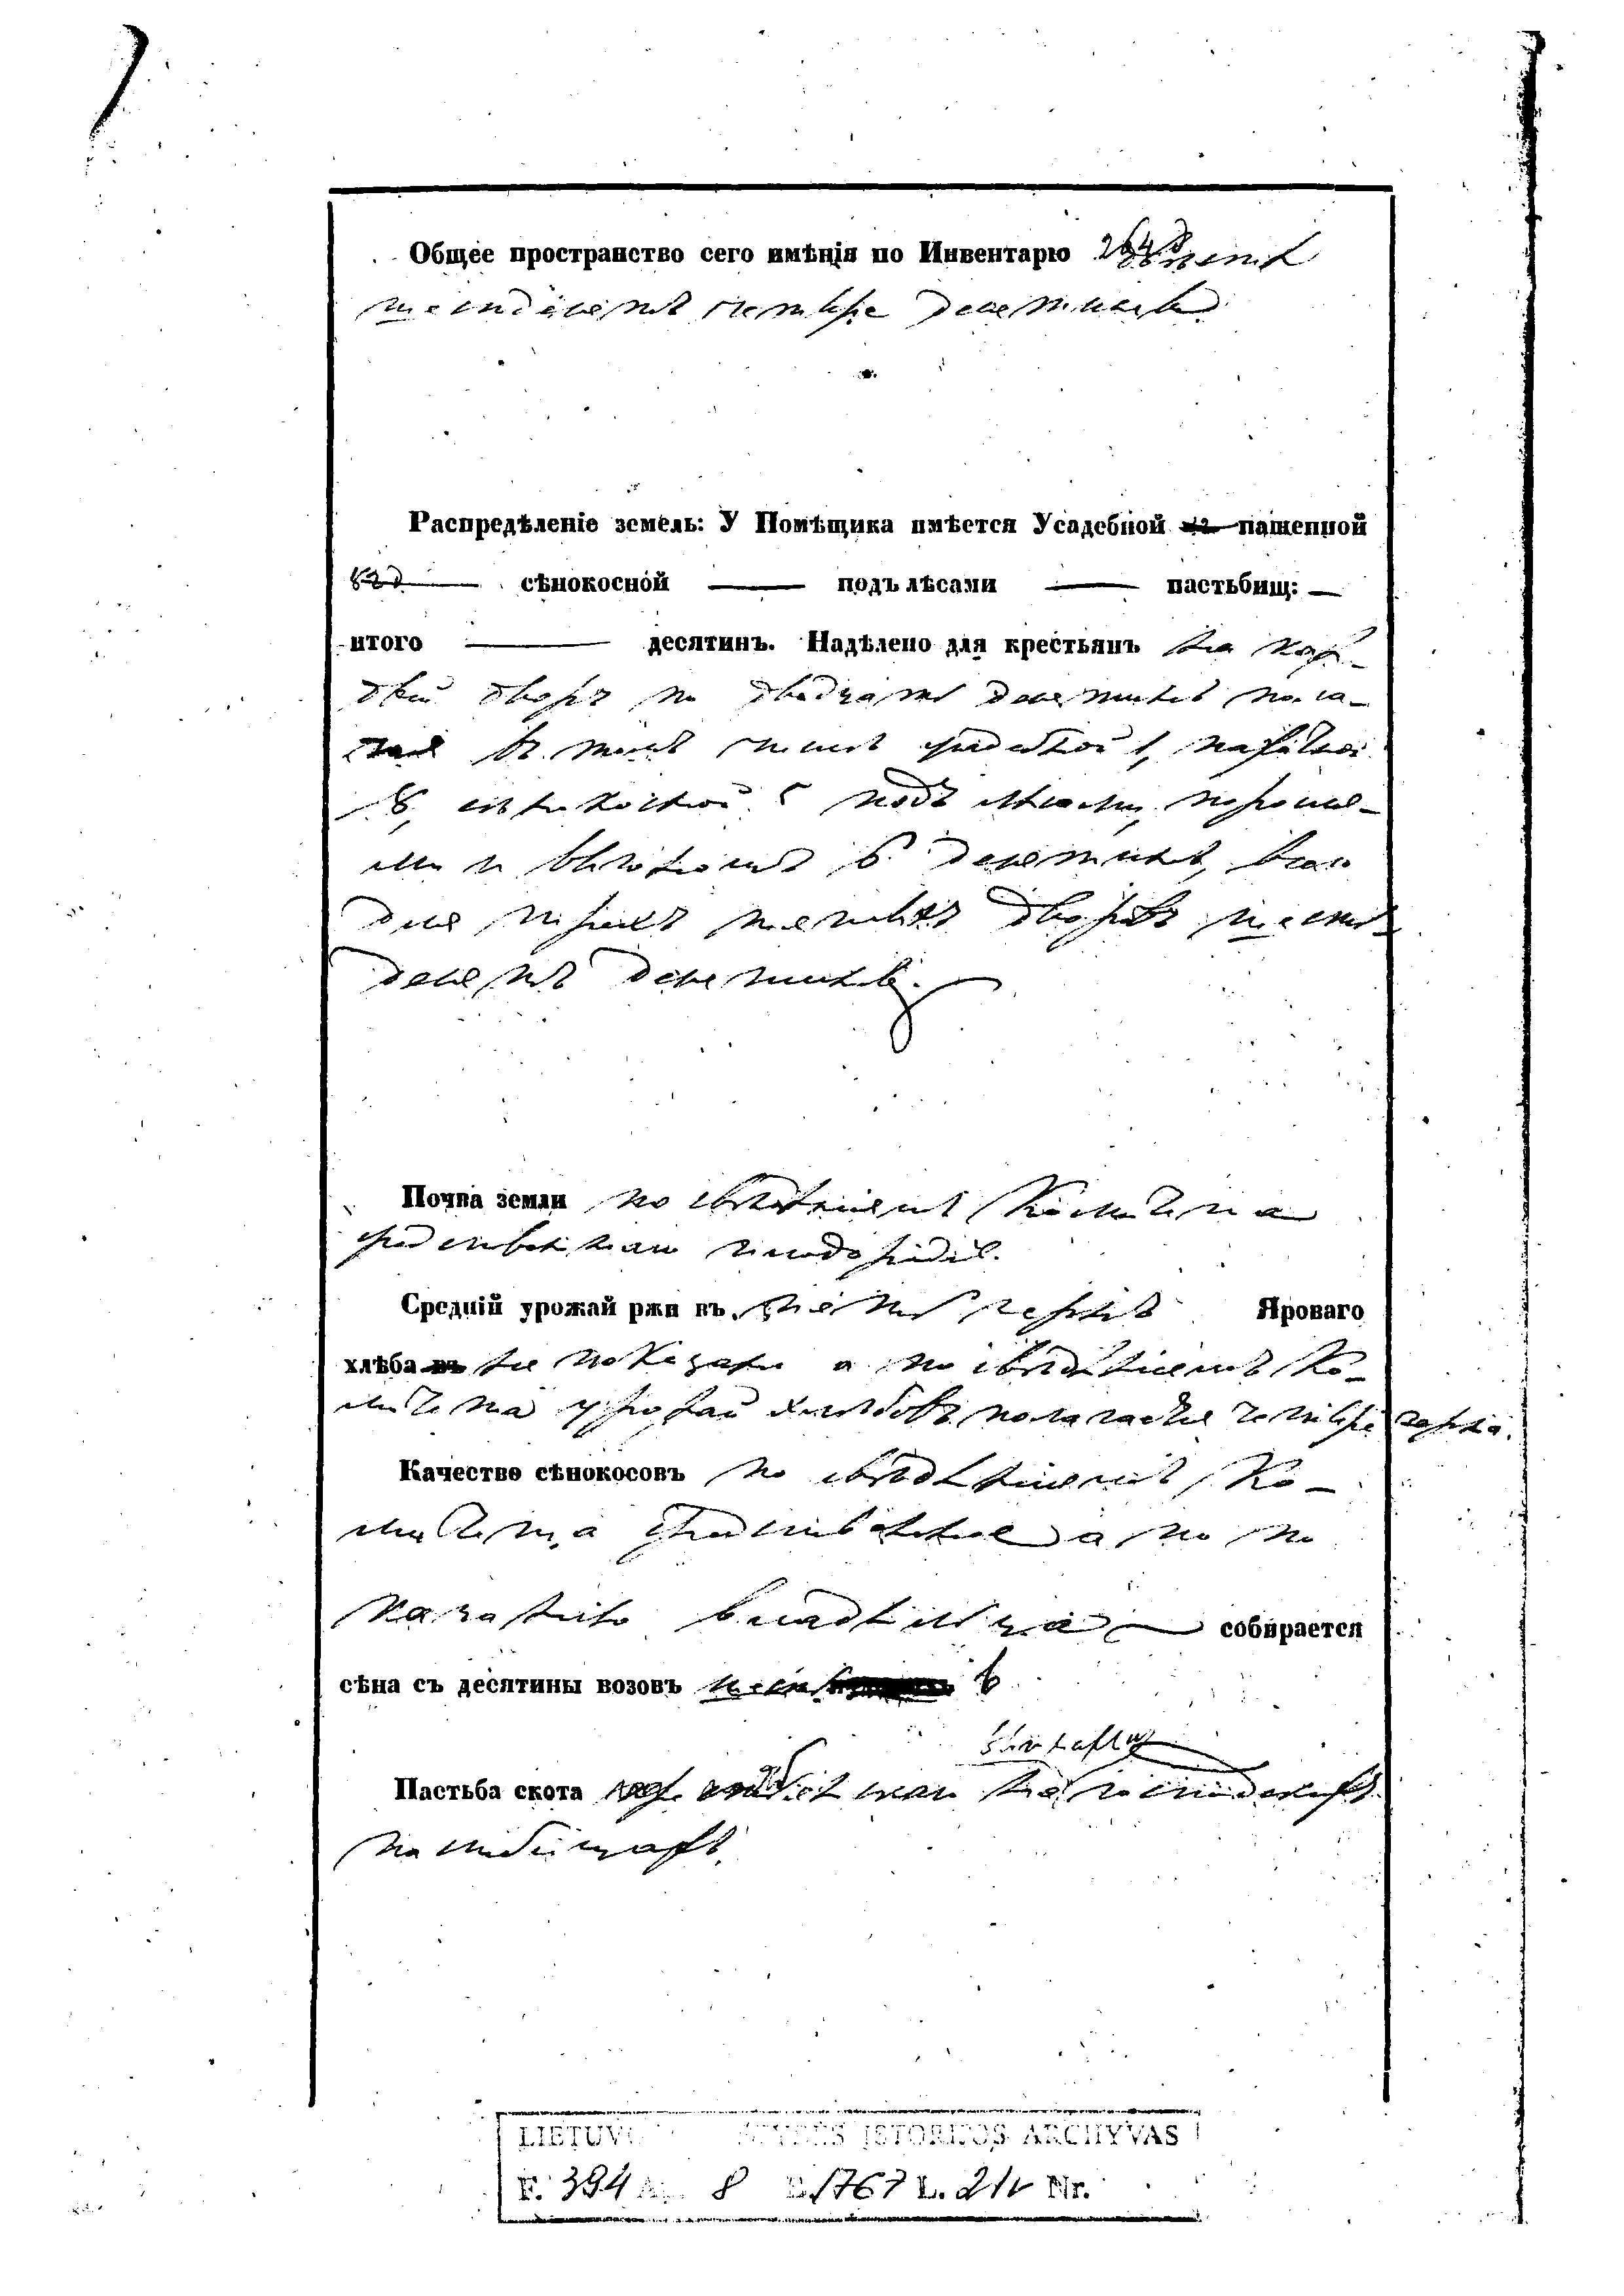 Общее пространство сего имѣнія по Инвентарю 264
шестьдесятъ четыре десятины
Распредѣленіе земель: У Помѣщика имѣется Усадебной пашенной
сѣнокосной — подъ лѣсами — пастьбищ: —
итого — десятинъ. Надѣлено для крестьянъ на каж-
дый дворъ по двадцати десятинъ пола-
въ томъ числѣ усадебной 1, пахатной
8, сѣнокосной 5 подъ лѣсомъ, поросля-
ми и выгономъ 6 десятинъ, всего
для трехъ тяглыхъ дворовъ шесть-
десятъ десятинъ.
Почва земли по свѣдѣніямъ Комитета
посредственнаго плодородія.
Средній урожай ржи въ пять зеренъ Яроваго
хлѣба не показано а по свѣдѣніямъ Ко-
митета урожай хлѣбовъ полагается четыре зерна.
Качество сѣнокосовъ по свѣдѣніямъ Ко-
митета посредственное а по по
казанію владѣльца — собирается
сѣна съ десятины возовъ 6
Пастьба скота на
пастбищахъ.
LIETUVOS ISTORIJOS ARCHYVAS
F. 394 Ap. 8 B. 1767 L. 21v Nr.